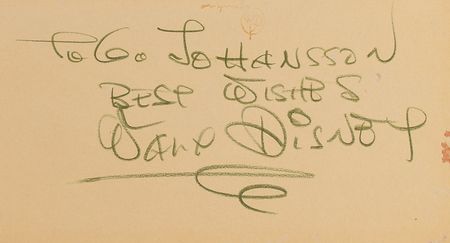 To Go Johansson
Best Wishes
Walt Disney